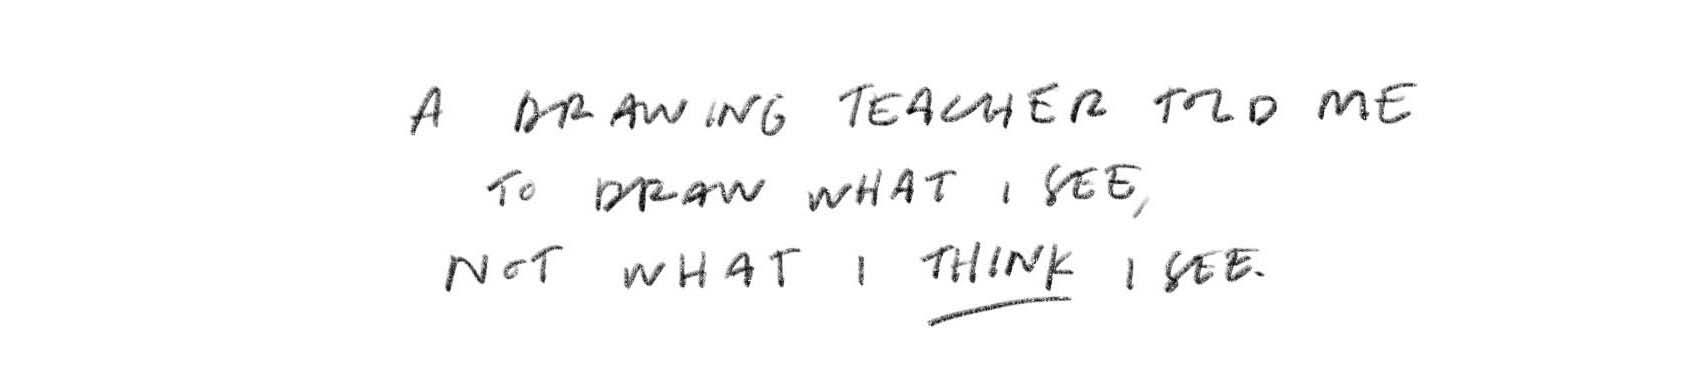 A DRAWING TEACHER TOLD ME
TO DRAW WHAT I SEE,
NOT WHAT I THINK I SEE.